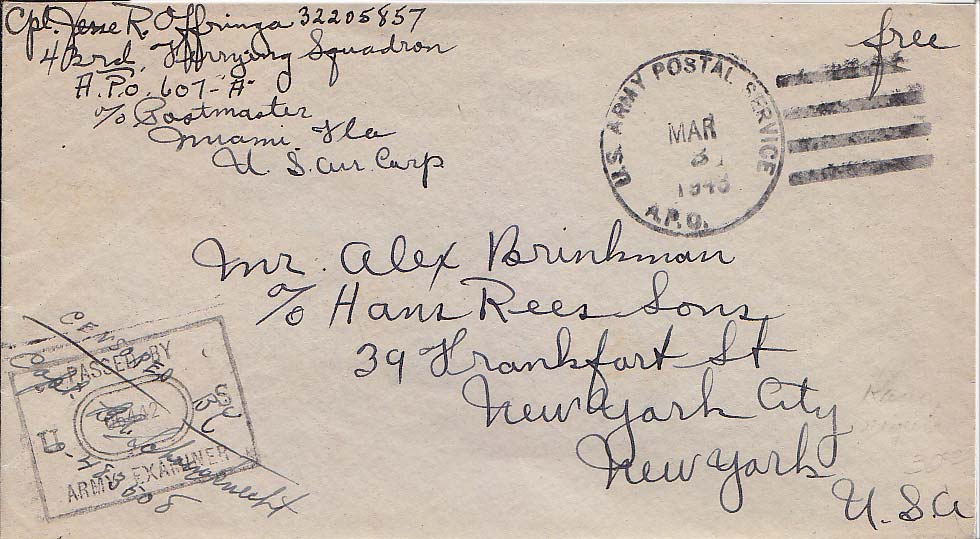 Cpl. Jesse R. Offringa 32205857
43rd. Ferrying Squadron
A.P.O. 607-"A"
c/o Postmaster
Miami. Fla
U. S. air. Corp
free
U.S. ARMY POSTAL SERVICE
MAR
1943
A.P.O.
Mr. Alex Brinkman
c/o Hans Rees Sons
39 Frankfort St
New York City
New York
U.S.A
CENSORED BY
Capt.
PASSED BY
ARMY EXAMINER